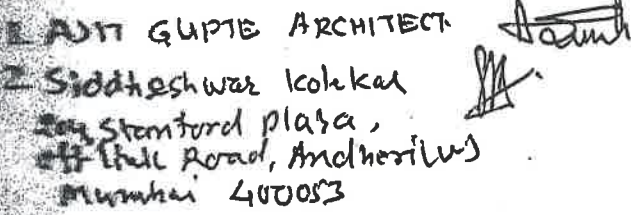 1. AJIT GUPTE ARCHITECT.
2 Siddheshwar Kolekar
204 Stamford plaza,
off link Road, Andheri(w)
Mumbai 400053